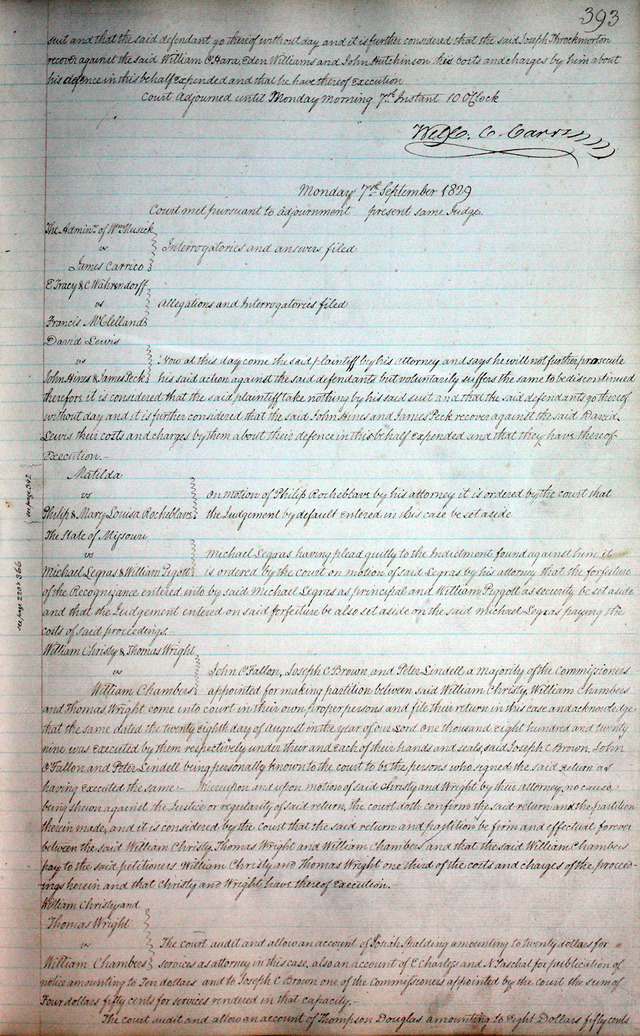 393
suit and that the said defendant go thereof without day and it is further considered that the said Joseph Throckmorton
recover against the said William O'Hara, Eden Williams and John Hutchinson his costs and charges by him about
his defence in this behalf Expended and that he have thereof Execution
Court Adjourned until Monday Morning 7th Instant 10 O'Clock
Will. C. Carr
Monday 7th September 1829
Court met pursuant to adjournment present same Judge.
The Adminr. of Wm Musick
vs
James Carrico
Interrogatories and answers filed
E Tracy & C Wahrendorff
vs
Francis McClelland
Allegations and Interrogatories filed
David Lewis
vs
John Hines & James Peck
Now at this day come the said plaintiff by his attorney and says he will not further prosecute
his said action against the said defendants but voluntarily suffers the same to be discontinued
therefore it is considered that the said plaintiff take nothing by his said suit and that the said defendants go thereof
without day and it is further considered that the said John Hines and James Peck recover against the said David
Lewis their costs and charges by them about their defence in this behalf Expended and that they have thereof
Execution.-
see page 342
Matilda
vs
Philip & Mary Louisa Rocheblave
On motion of Philip Rocheblave by his attorney it is ordered by the court that
the Judgement by default entered in this case be set aside
see page 220 & 366
The State of Missouri
vs
Michael Legras & William Pigott
Michael Legras having plead guilty to the Indictment found against him it
is ordered by the court on motion of said Legras by his attorney that the forfeiture
of the Recognizance entered into by said Michael Legras as principal and William Piggott as security be set aside
and that the Judgement entered on said forfeiture be also set aside on the said Michael Legras paying the
costs of said proceedings.
William Christy & Thomas Wright
vs
William Chambers
John O'Fallon, Joseph C Brown and Peter Lindell a majority of the Commissioners
appointed for making partition between said William Christy, William Chambers
and Thomas Wright come into court in their own proper persons and file their return in this case and acknowledge
that the same dated the twenty eighth day of August in the year of our Lord One thousand eight hundred and twenty
nine was executed by them respectively under their and each of their hands and seals, said Joseph C Brown, John
O'Fallon and Peter Lindell being personally known to the court to be the persons who signed the said return as
having executed the same - Whereupon and upon motion of said Christy and Wright by their attorney, no cause
being shewn against the Justice or regularity of said return, the court doth confirm the said return and the partition
therein made, and it is considered by the court that the said return and partition be firm and effectual forever
between the said William Christy, Thomas Wright and William Chambers and that the said William Chambers
pay to the said petitioners William Christy and Thomas Wright one third of the costs and charges of the proceed-
ings herein and that Christy and Wright have thereof Execution.-
William Christy and
Thomas Wright
vs
William Chambers
The court audit and allow an account of Josiah Spalding amounting to twenty dollars for
services as attorney in this case, also an account of E Charless and N Paschal for publication of
notice amounting to Ten dollars and to Joseph C Brown one of the Commissioners appointed by the court the sum of
Four dollars fifty cents for services rendered in that capacity.-
The court audit and allow an account of Thompson Douglas amounting to Eight Dollars fifty cents